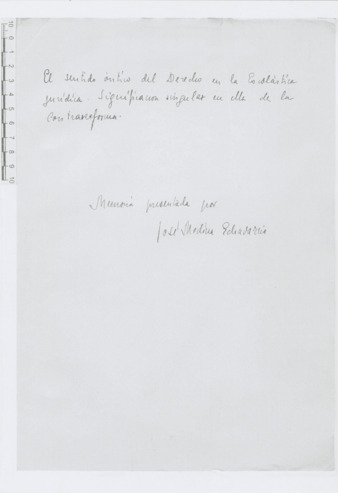 El sentido óntico del Derecho en la Escolástica
jurídica. Significación singular en ella de la
Contrarreforma.
Memoria presentada por
José Medina Echavarría